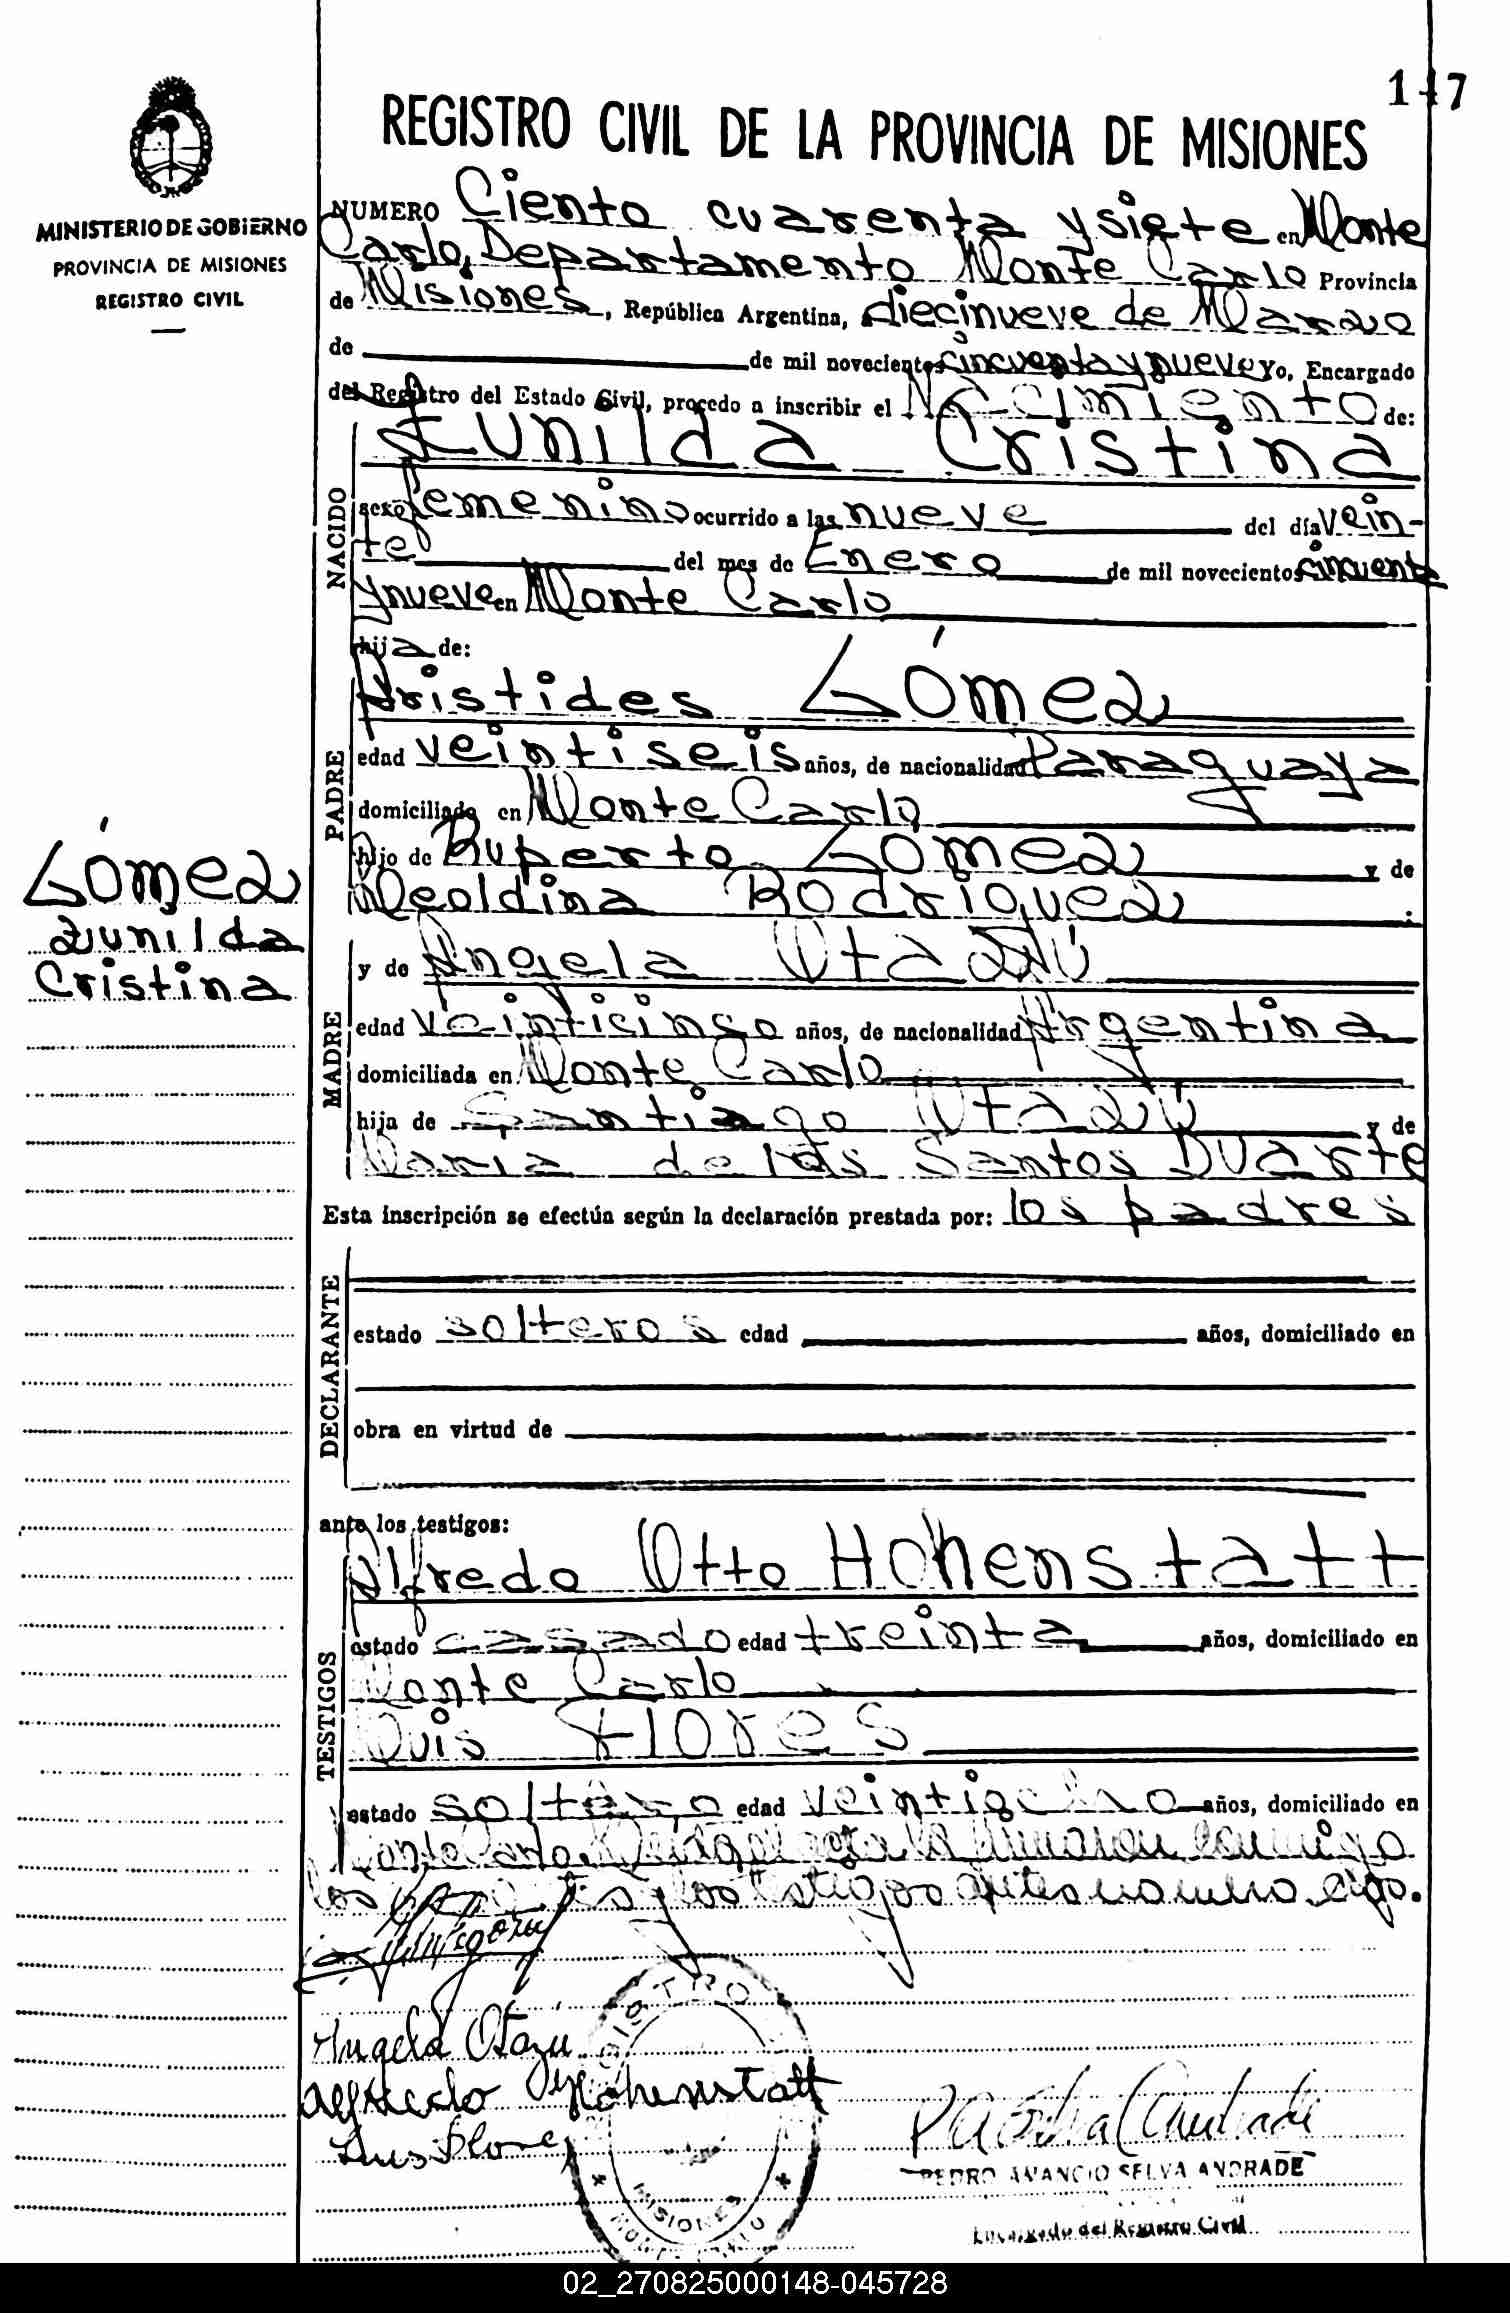 147
REGISTRO CIVIL DE LA PROVINCIA DE MISIONES
MINISTERIO DE GOBIERNO
PROVINCIA DE MISIONES
REGISTRO CIVIL
NUMERO Ciento cuarenta y siete en Monte
Carlo, Departamento Monte Carlo Provincia
de Misiones, República Argentina, diecinueve de Marzo
de de mil novecientos cincuenta y nueve Yo, Encargado
del Registro del Estado Civil, procedo a inscribir el Nacimiento de:
Zunilda Cristina
NACIDO
sexo femenino ocurrido a las nueve del día vein-
te del mes de Enero de mil novecientos cincuenta
y nueve en Monte Carlo
hija de:
Aristides Gómez
PADRE
edad veintiseis años, de nacionalidad Paraguaya
domiciliado en Monte Carlo
hijo de Ruperto Gómez y de
Rodriguez
Gómez
Zunilda
Cristina
y de Angela Otazú
MADRE
edad veinticinco años, de nacionalidad Argentina
domiciliada en Monte Carlo
hija de Santiago Otazú y de
Maria de los Santos Duarte
Esta inscripción se efectúa según la declaración prestada por: los padres
DECLARANTE
estado solteros edad años, domiciliado en
obra en virtud de
ante los testigos:
Alfredo Otto Hohenstatt
TESTIGOS
estado casado edad treinta años, domiciliado en
Monte Carlo
Luis Flores
estado soltero edad veintiocho años, domiciliado en
Monte Carlo. acta la firmaron conmigo
los y los testigos antes nombrados digo.
Angela Otazú
Alfredo Hohenstatt
Luis Flores
REGISTRO
MISIONES
MONTE CARLO
PEDRO AMANCIO SELVA ANDRADE
Encargado del Registro Civil
02_270825000148-045728